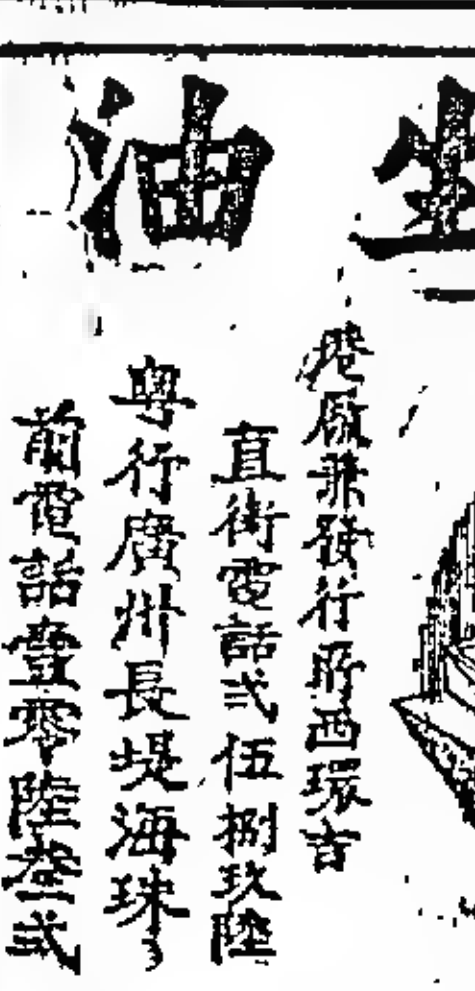 生油
港廠兼發行所西環吉
直街電話弍伍捌玖陸
粵行廣州長堤海珠
前電話壹零陸弍